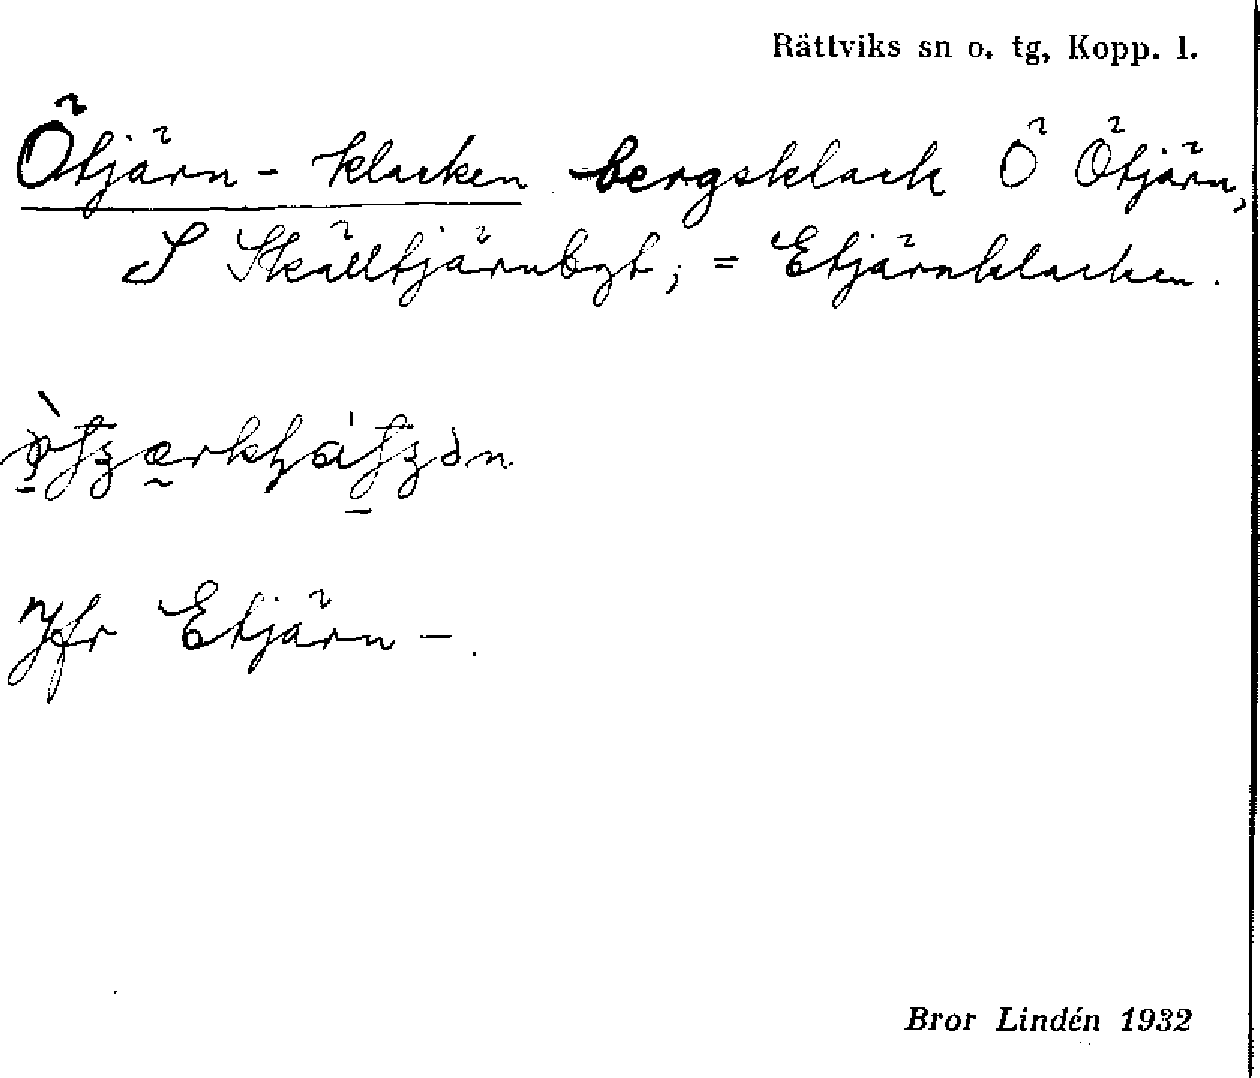 Rättviks sn o. tg, Kopp. l.
Ötjärn-klacken bergsklack Ö Ötjärn,
S Skälltjärnbgt; = Etjärnklacken.
Jfr Etjärn -.
Bror Lindén 1932